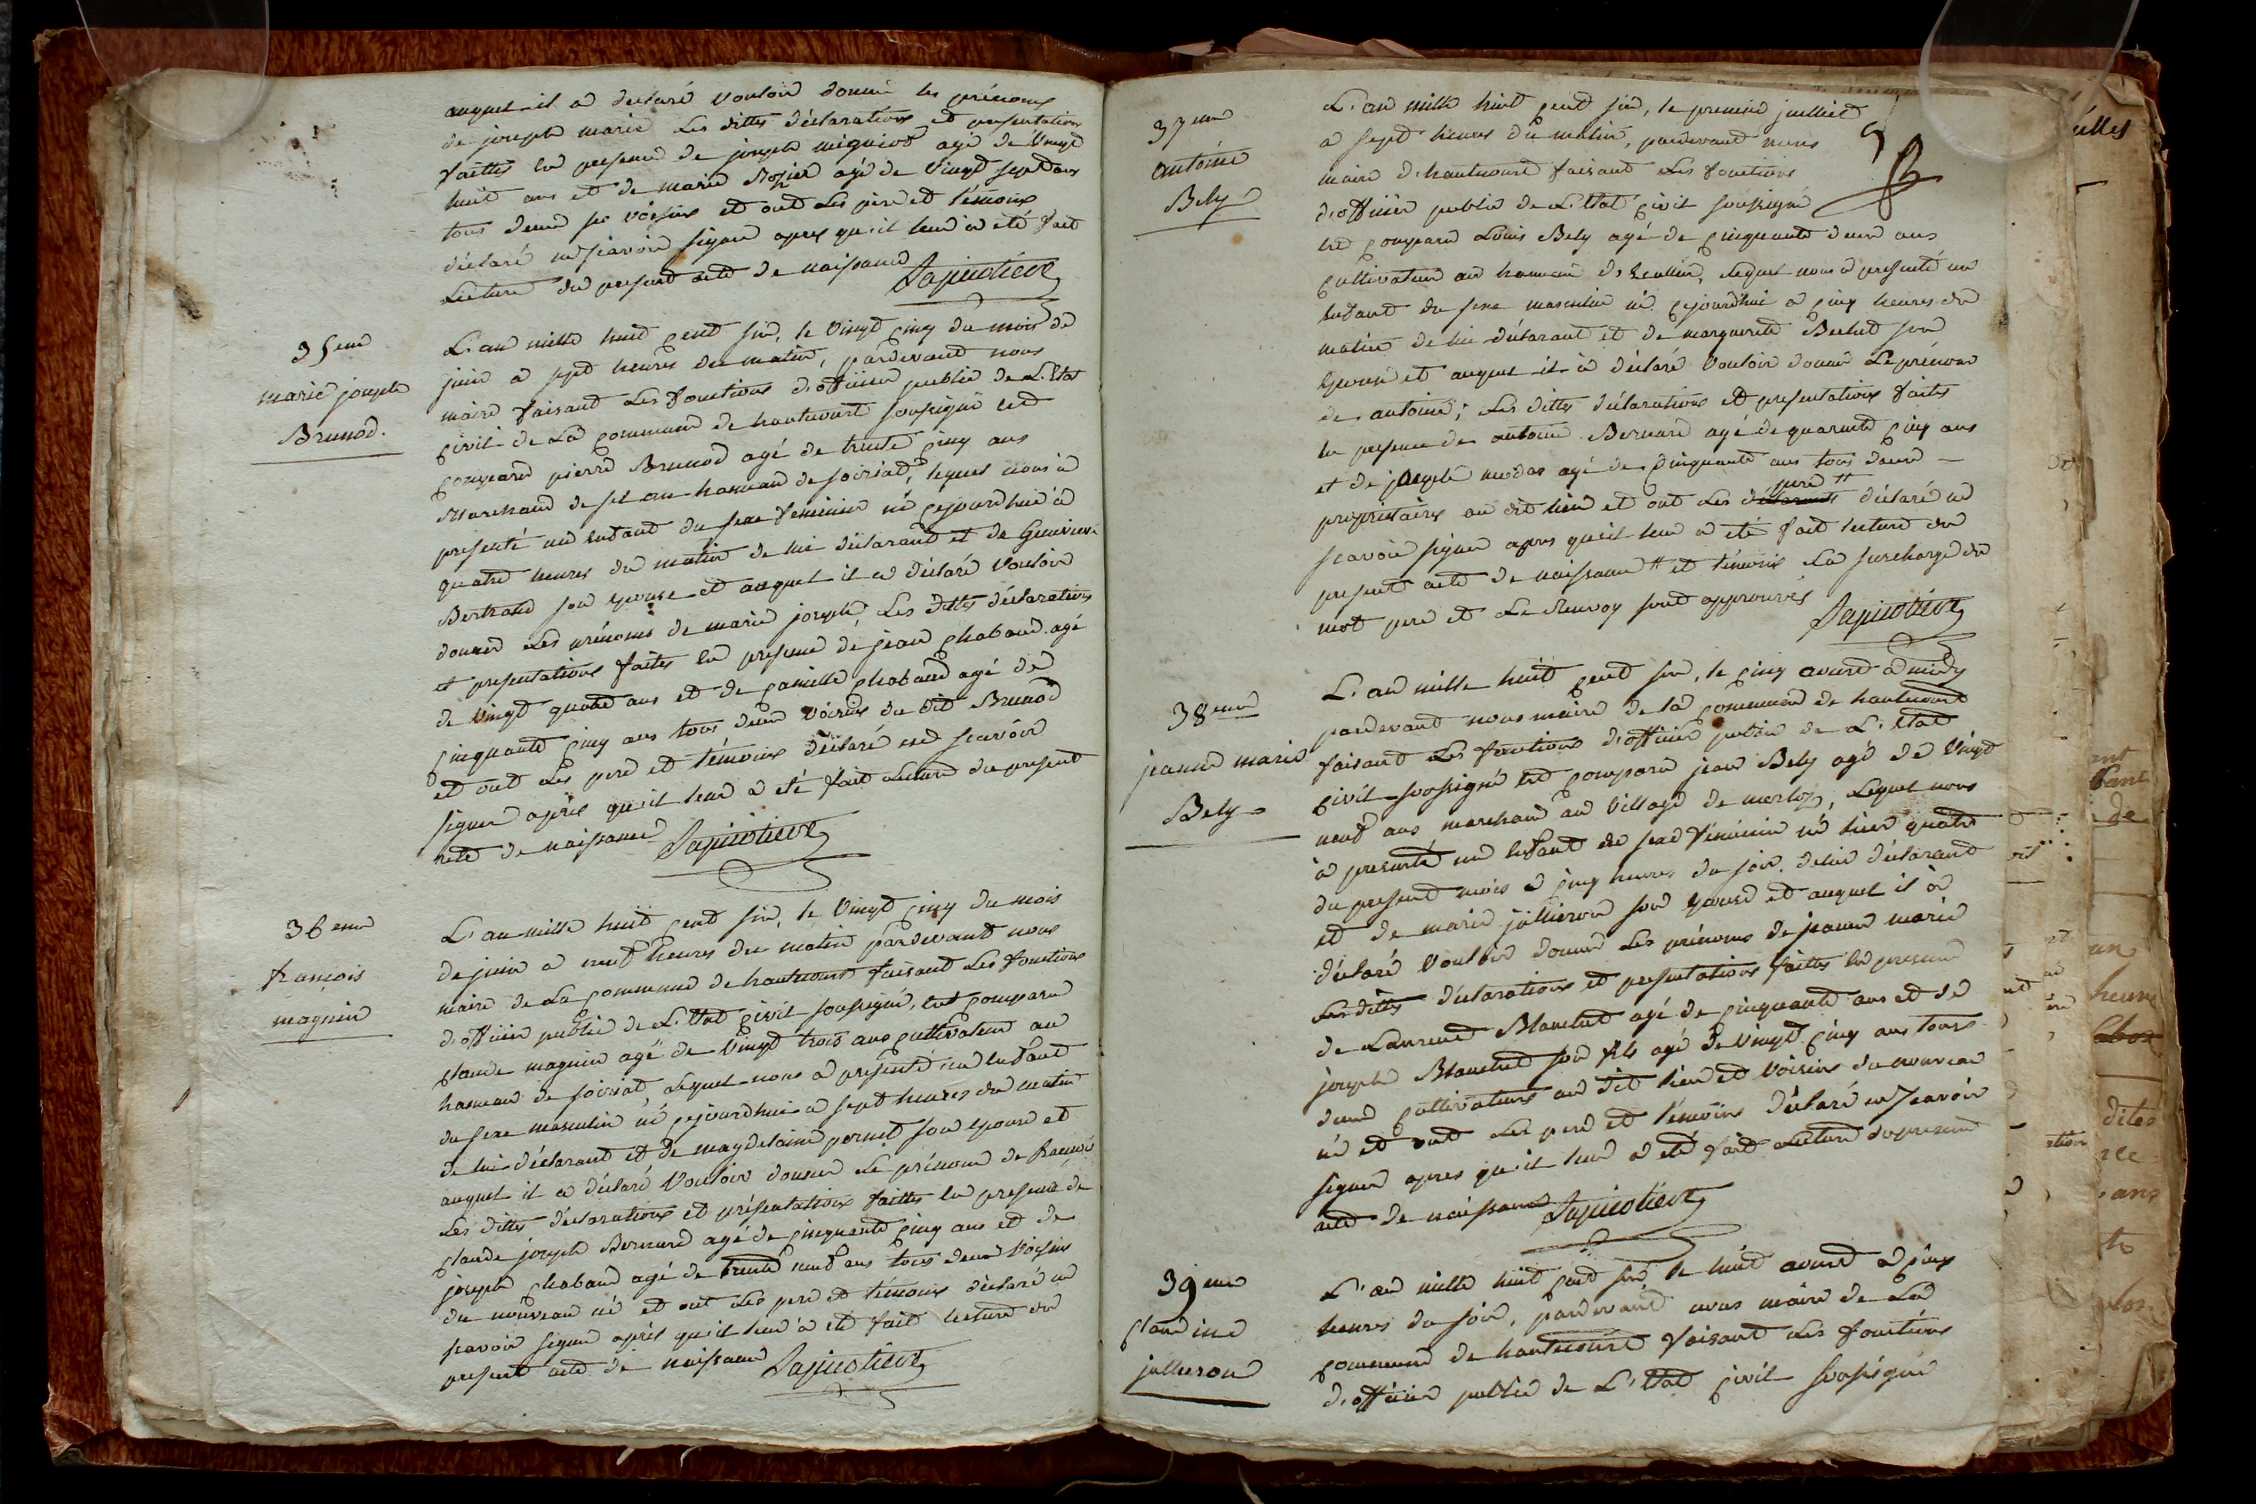 auquel il a declaré vouloir donner les prénoms
de joseph marie Les dittes déclarations et presentation
faittes en presence de joseph migniot agé de vingt
huit ans et de marie Rozier agé de vingt sept ans
tous deux ses voisins et ont Les pere et témoins
déclaré ne scavoir signer apres qu'il leur a eté fait
Lecture du present acte de naissance
35eme
marie joseph
Brunod.
L'an mille huit cent six, le vingt cinq du mois de
juin a sept heures du matin, pardevant nous
maire faisant Les fonctions d'officier public de L'Etat
civil de La commune de hautecourt soussigné est
comparu pierre Brunod agé de trente cinq ans
Marchand de sel au hameau de soiriat, lequel nous a
presenté un enfant du sexe feminin né cejourdhuie à
quatre heures du matin de lui déclarant et de Genevieve
Bertrand son epouse et auquel il a déclaré vouloir
donner Les prénoms de marie joseph, Les dittes déclarations
et presentations faites en presence de jean chaband agé
de vingt quatre ans et de camille chaband agé de
cinquante cinq ans tous deux voisins du dit Brunod
et ont Les pere et témoins déclaré ne scavoir
signer après qu'il leur a eté fait Lecture du present
acte de naissance
36eme
francois
magnin
L'an mille huit cent six, le vingt cinq du mois
de juin a neuf heures du matin pardevant nous
maire de La commune de hautecourt faisant Les fonctions
d'officier public de L'Etat civil soussigné, est comparu
claude magnin agé de vingt trois ans cultivateur au
hameau de soiriat, Lequel nous a presenté un enfant
du sexe masculin né cejourdhui a sept heures du matin
de lui déclarant et de magdelaine pernet son epouse et
auquel il a déclaré vouloir donner Le prénom de francois
Les dittes déclarations et présentations faittes en presence de
claude joseph Bernard agé de cinquante cinq ans et de
joseph chaband agé de trente neuf ans tous deux voisins
du nouveau né et ont Les pere et témoins déclaré ne
scavoir signer après qu'il leur a eté fait lecture du
present acte de naissance
37eme
antoine
Bely
L'an mille huit cent six, le premier juillet
a sept heures du matin, pardevant nous
maire d'hautecourt faisant Les fonctions
d'officier public de L'Etat civil soussigné
est comparu Louis Bely agé de cinquante deux ans
cultivateur au hameau, lequel nous a presenté un
enfant du sexe masculin né cejourdhui a cinq heures du
matin de lui déclarant et de marguerite son
epouse et auquel il a déclaré vouloir donner Le prénom
de antoine; Les dittes déclarations et presentations faites
en presence de antoine Bernard agé de quarante cinq ans
et de joseph agé de cinquante ans tous deux
propriétaires au dit lieu et ont Les pere # déclaré ne
scavoir signer apres qu'il leur a eté fait lecture du
present acte de naissance # et témoins La surcharge du
mot pere et Le Renvoy sont approuvés
38eme
jeanne marie
Bely
L'an mille huit cent six, le cinq avant midy
pardevant nous maire de la commune de hautecourt
faisant Les fonctions d'officier public de L'Etat
civil soussigné est comparu jean Bely agé de vingt
neuf ans marchand au village de merloz, Lequel nous
a presenté un enfant de sexe féminin né hier quatre
du present mois a cinq heures du soir. de lui déclarant
et de marie jullieron son epouse et auquel il a
déclaré vouloir donner Les prénoms de jeanne marie
Les dittes déclarations et presentations faittes en presence
de Laurent Blanchet agé de cinquante ans et de
joseph Blanchet son fils agé de vingt cinq ans tous
deux cultivateurs au dit lieu et voisins du nouveau
né et ont Les pere et témoins déclaré ne scavoir
signer apres qu'il leur a eté fait Lecture du present
acte de naissance
39eme
claudine
jullieron
L'an mille huit cent six, le huit avant a cinq
heures du soir, pardevant nous maire de La
commune de hautecourt faisant Les fonctions
d'officier public de L'Etat civil soussigné